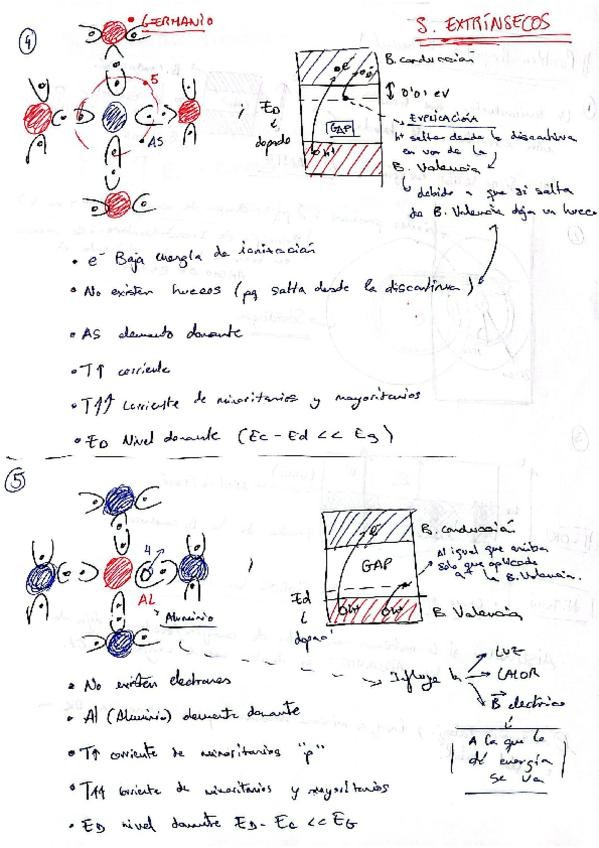 S. EXTRÍNSECOS
4
GERMANIO
5
AS
ED
dopado
e-
e-
h+
GAP
B. conducción
0'01 eV
EXPLICACIÓN
salta desde la discontinua
en vez de la
B. Valencia
debido a que si salta
de B. Valencia deja un hueco
• e- Baja energía de ionización
• No existen huecos (pq salta desde la discontinua)
• AS elemento donante
• T↑ corriente
• T↑↑ corriente de minoritarios y mayoritarios
• ED Nivel donante (Ec - Ed << Eg)
5
4
AL
Aluminio
Ed
e-
GAP
h+
B. Conducción
Al igual que arriba
solo que aplicado
a la B. Valencia.
B. Valencia
• No existen electrones
• Al (Aluminio) elemento donante
• T↑ corriente de minoritarios "p"
• T↑↑ corriente de minoritarios y mayoritarios
• ED nivel donante ED - Ec << EG
Influye
LUZ
CALOR
B electrico
A la que le
dé energía
se va